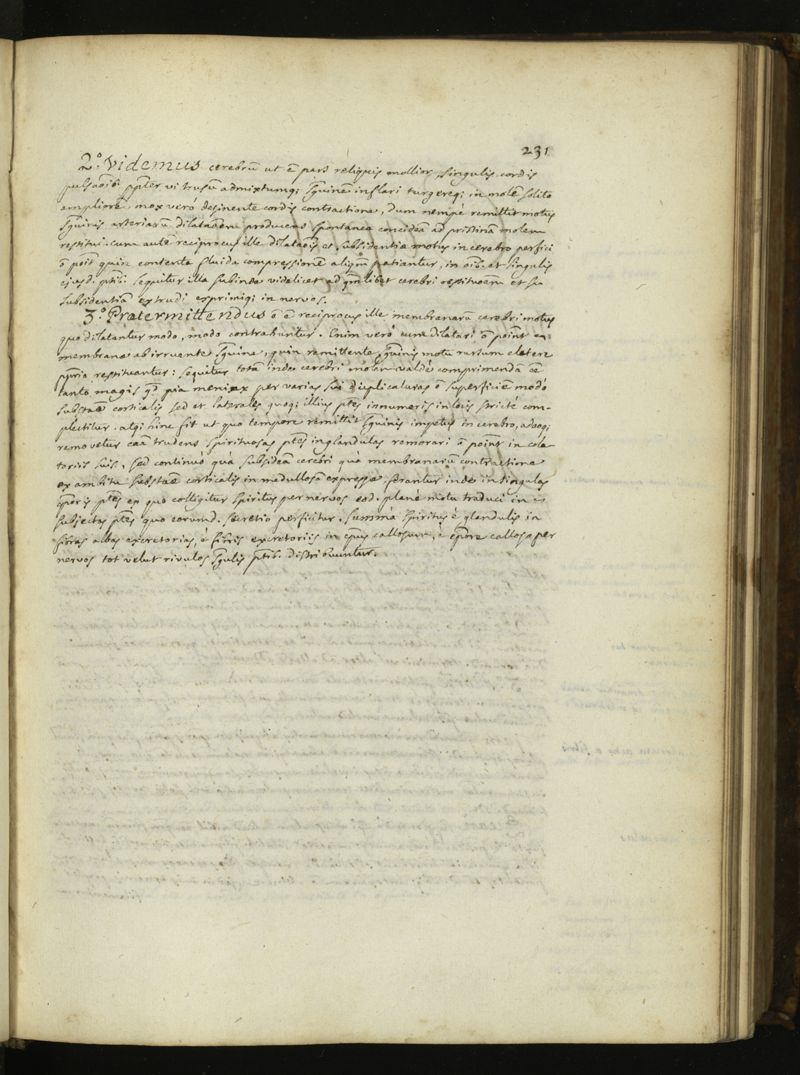 231
2.° Videmus cerebrū ut ē pars reliquis mollior, singulis cordis
pulsaōib; vi trusū admixtumq; sguinē inflari turgereq; in molē solito
ampliorē mox veró desinente cordis contractione, dum nempé remittit motus
sguinis arteriarū dilataōem producens spontanea concidēa ad pristinā molem
restitui. cum autē reciprocus ille dilataōis et subsidentia motus in cerebro perfici
ō poit quin contenta fluida compressionē aliqm̄ patiantur, in oib. et singulis
ejusd. ptib. sequitur illa subinde videlicet ad qmlibet cerebri restituōem et su
subsidentiā extrudi exprimiq; in nervos.
3.° Pratermittendus ō ē reciprocus ille membranarū cerebri motus
quo dilatantur modo, modo contrahuntur. Enim veró cum dilatari ō point
membrana ab irruente sguine, quin remittente sguinis motu rursum elatere
restituantur: sequitur totā inde cerebri molem valde comprimendā ēe
tanto magis qd pia meninx per varias sui duplicaturas ō superficiē modo
substae corticalis sed et laterales quoq; illius ptes innumeris in locis stricté com-
plectitur. atq; hinc fit ut quo tempore remittit sguinis impetus in cerebro, adeoq;
removetur caā trudens spirituosas ptes in glandulas remorari ō point in cola-
toriis suis, sed continuó quà subsideā cerebri quà membranarum contractione
ex ambitu substae corticalis in medullosā expressae ferantur inde in singulas
cporis ptes ex quo colligitur spiritus per nervos eod. plane motu traduci in
subjectas ptes quo eorumd. secretio perficitur. Summa spiritus é glandulis in
fibras albas excretorias, é fibris excretoriis in cpus callosum, é cpore calloso per
nervos tot velut rivulos sgulis ptib. distribuuntur.